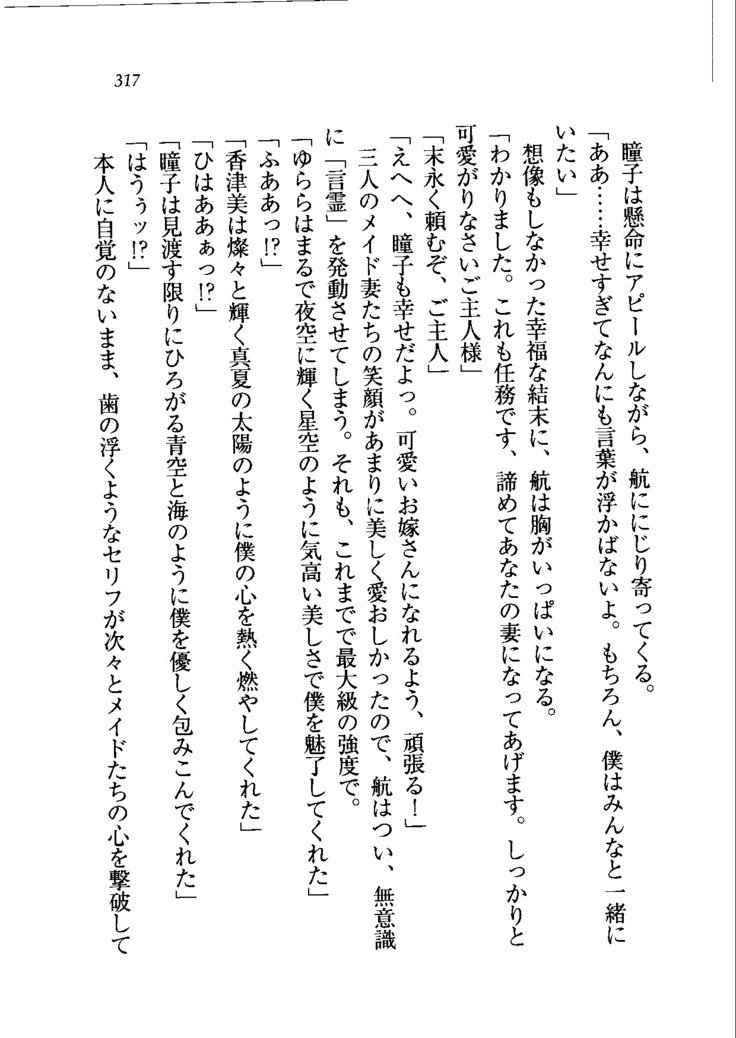 317
瞳子は懸命にアピールしながら、航ににじり寄ってくる。
「ああ……幸せすぎてなんにも言葉が浮かばないよ。もちろん、僕はみんなと一緒に
いたい」
想像もしなかった幸福な結末に、航は胸がいっぱいになる。
「わかりました。これも任務です、諦めてあなたの妻になってあげます。しっかりと
可愛がりなさいご主人様」
「末永く頼むぞ、ご主人」
「えへへ、瞳子も幸せだよっ。可愛いお嫁さんになれるよう、頑張る！」
三人のメイド妻たちの笑顔があまりに美しく愛おしかったので、航はつい、無意識
に「言霊」を発動させてしまう。それも、これまでで最大級の強度で。
「ゆららはまるで夜空に輝く星空のように気高い美しさで僕を魅了してくれた」
「ふああっ!?」
「香津美は燦々と輝く真夏の太陽のように僕の心を熱く燃やしてくれた」
「ひはああぁっ!?」
「瞳子は見渡す限りにひろがる青空と海のように僕を優しく包みこんでくれた」
「はうぅッ!?」
本人に自覚のないまま、歯の浮くようなセリフが次々とメイドたちの心を撃破して